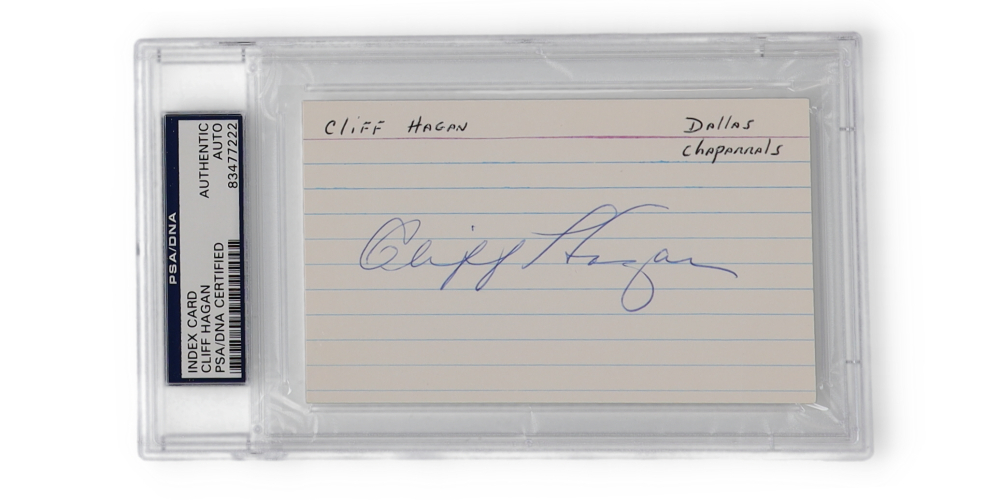 PSA/DNA
INDEX CARD
CLIFF HAGAN
PSA/DNA CERTIFIED
AUTHENTIC
AUTO
83477222
Cliff Hagan
Dallas
Chaparrals
Cliff Hagan